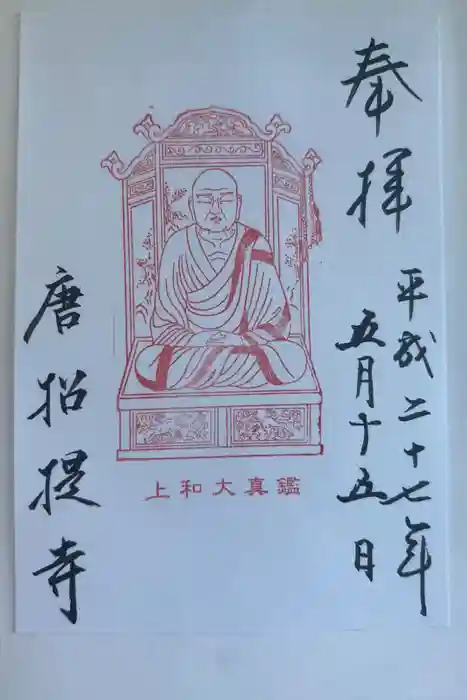 奉拝
平成二十七年
五月十五日
上和大真鑑
唐招提寺